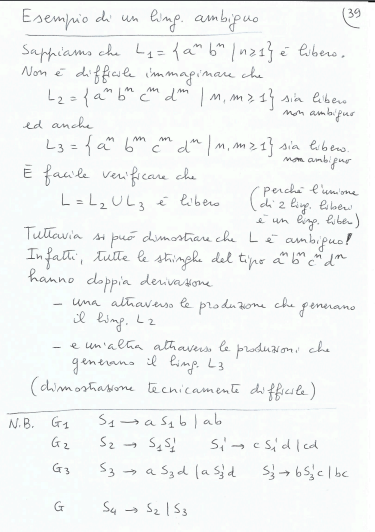 Esempio di un ling. ambiguo
39
Sappiamo che L₁ = { aⁿ bⁿ | n ≥ 1 } è libero.
Non è difficile immaginare che
L₂ = { aⁿ bⁿ cᵐ dᵐ | n, m ≥ 1 } sia libero
non ambiguo
ed anche
L₃ = { aⁿ bᵐ cᵐ dⁿ | n, m ≥ 1 } sia libero.
non ambiguo
È facile verificare che
L = L₂ ∪ L₃ è libero
(perché l'unione
di 2 ling. liberi
è un ling. libero)
Tuttavia si può dimostrare che L è ambiguo!
Infatti, tutte le stringhe del tipo aⁿ bⁿ cⁿ dⁿ
hanno doppia derivazione
– una attraverso le produzione che generano
il ling. L2
– e un'altra attraverso le produzioni che
generano il ling. L3
(dimostrazione tecnicamente difficile)
N.B. G1 S₁ → a S₁ b | ab
G2 S₂ → S₁S₁' S₁' → c S₁' d | cd
G3 S₃ → a S₃ d | a S₃' d S₃' → b S₃' c | bc
G S₄ → S₂ | S₃